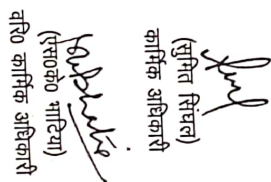 (सुमित सिंघल)
कार्मिक अधिकारी
(एस०के० भाटिया)
वरि० कार्मिक अधिकारी